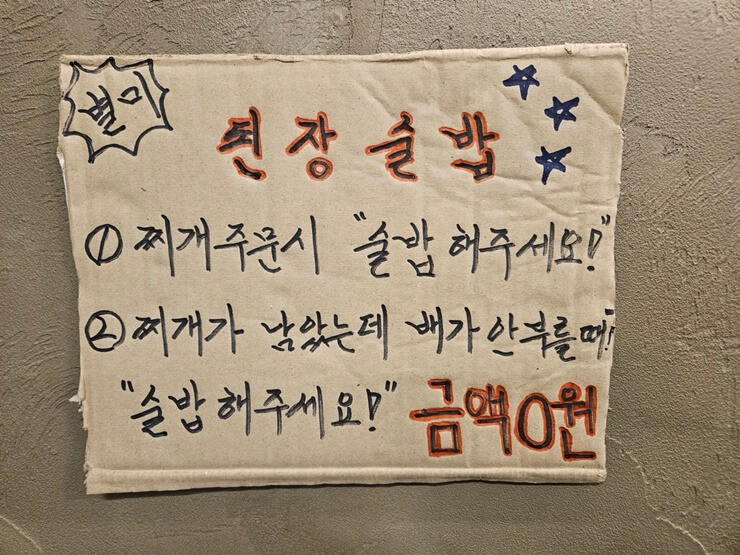 별미
된장술밥
① 찌개주문시 "술밥해주세요!"
② 찌개가 남았는데 배가 안부를때!
"술밥해주세요!" 금액0원